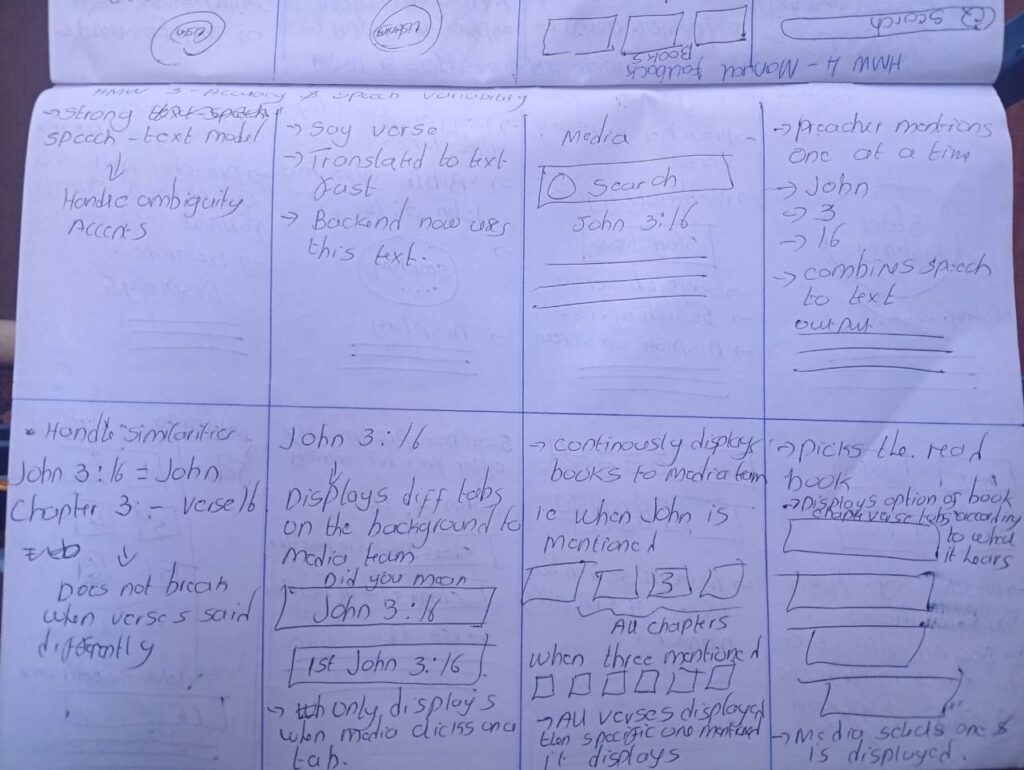 Listen
Listening
Books
Search
HMW 4 - Manual fallback
HMW 3 - Accuracy & speech variability
→ Strong
speech - text model
↓
Handle ambiguity
Accents
→ Say verse
→ Translated to text
fast
→ Backend now uses
this text.
Media
Search
John 3:16
→ Preacher mentions
one at a time
→ John
→ 3
→ 16
→ combines speech
to text
output
• Handle similarities
John 3:16 = John
Chapter 3 :- verse 16
↓
Does not break
when verses said
differently
John 3:16
↓
Displays diff tabs
on the background to
media team
Did you mean
John 3:16
1st John 3:16
→ only displays
when media clicks on a
tab.
→ continously display
books to media team
ie when John is
mentioned
3
All chapters
when three mentioned
→ All verses displayed
then specific one mentioned
it displays
→ Picks the read
book
→ Displays option of book
chapt verse tabs according
to what
it hears
→ Media selects one &
is displayed.